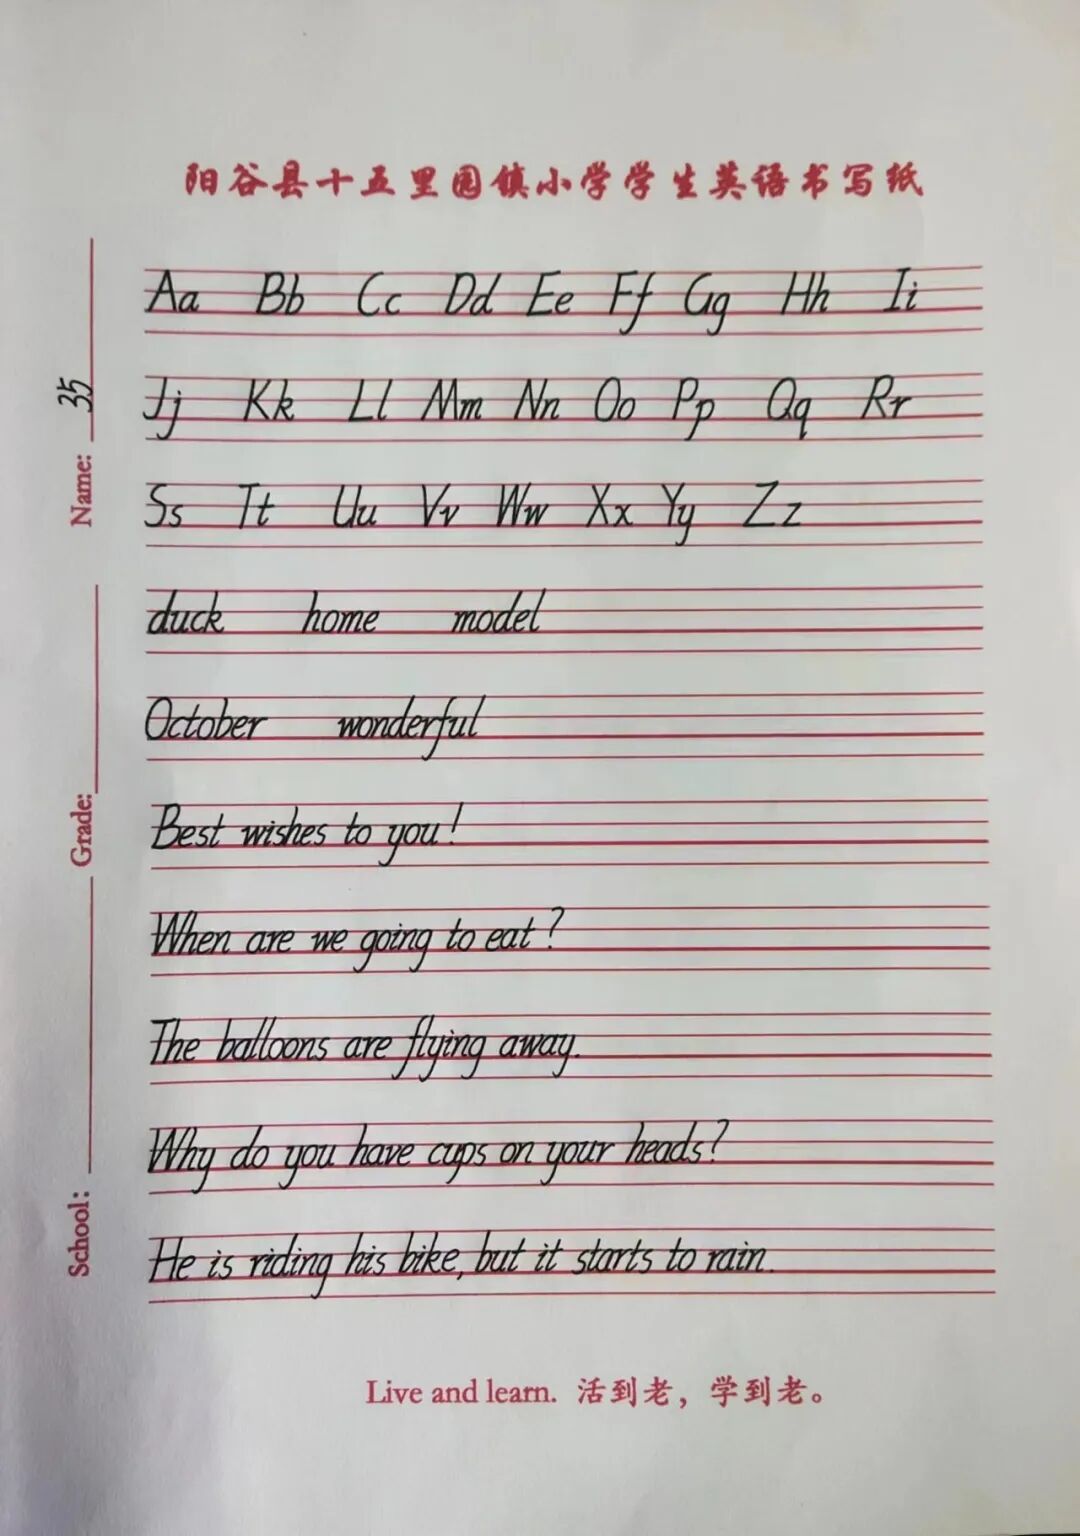 阳谷县十五里园镇小学学生英语书写纸
Aa Bb Cc Dd Ee Ff Gg Hh Ii
Jj Kk Ll Mm Nn Oo Pp Qq Rr
Ss Tt Uu Vv Ww Xx Yy Zz
duck home model
October wonderful
Best wishes to you!
When are we going to eat?
The balloons are flying away.
Why do you have cups on your heads?
He is riding his bike, but it starts to rain.
School: Grade: Name: 35
Live and learn. 活到老，学到老。